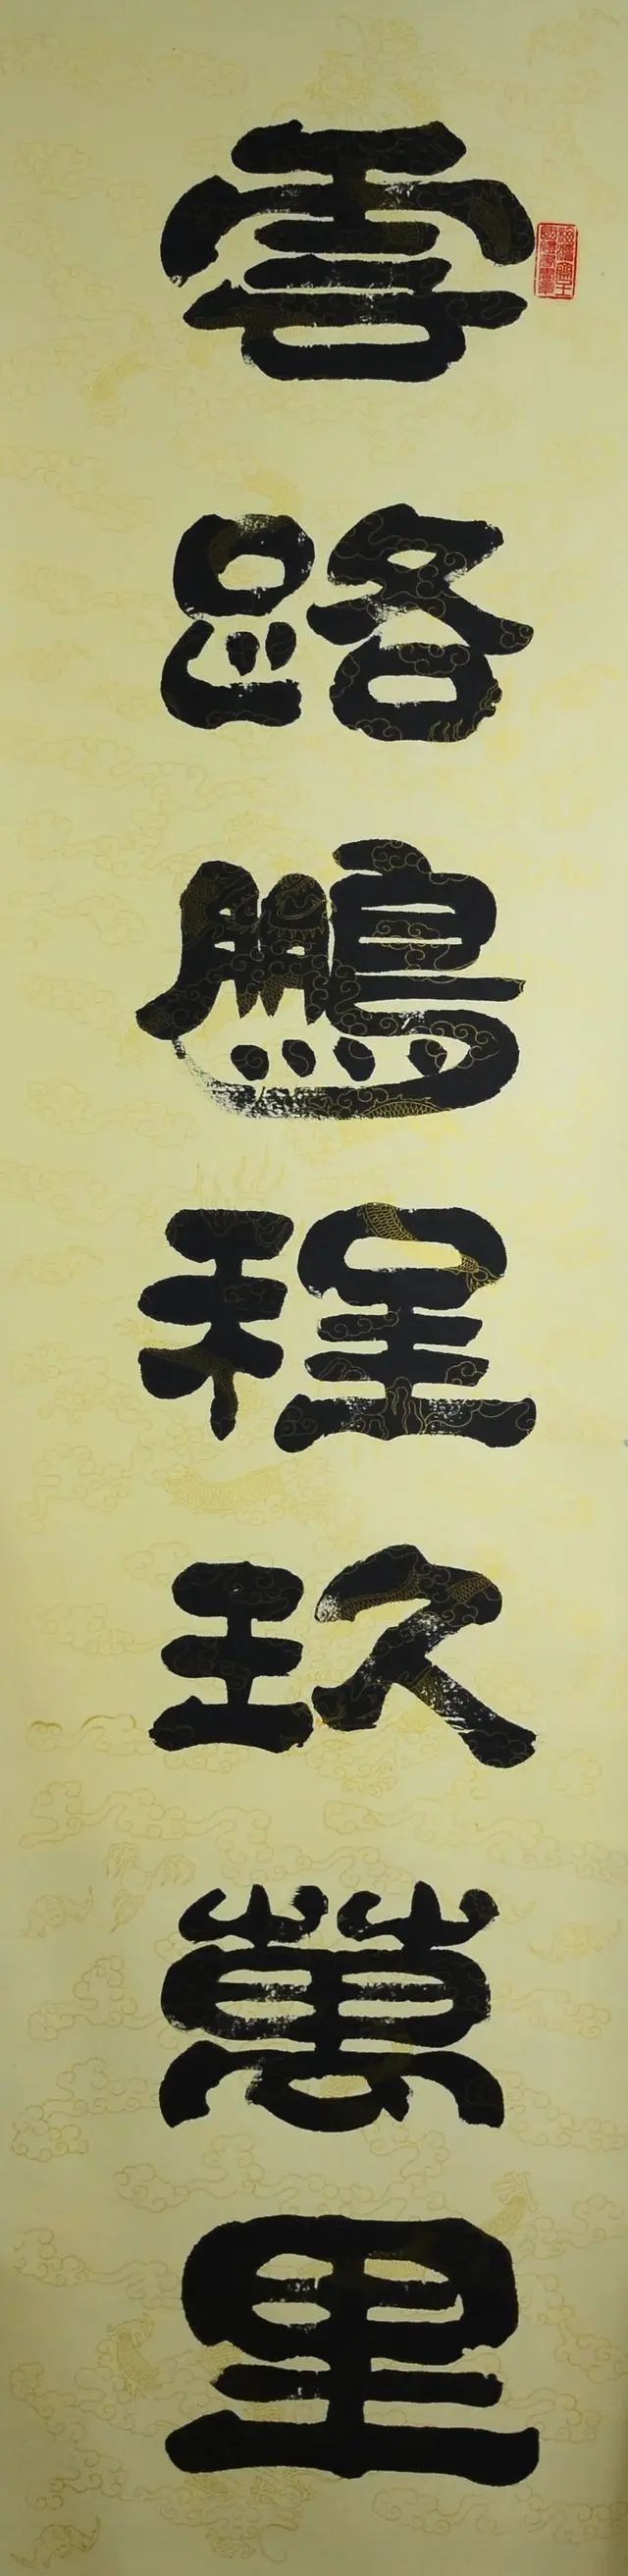 雲路鵬程玖萬里